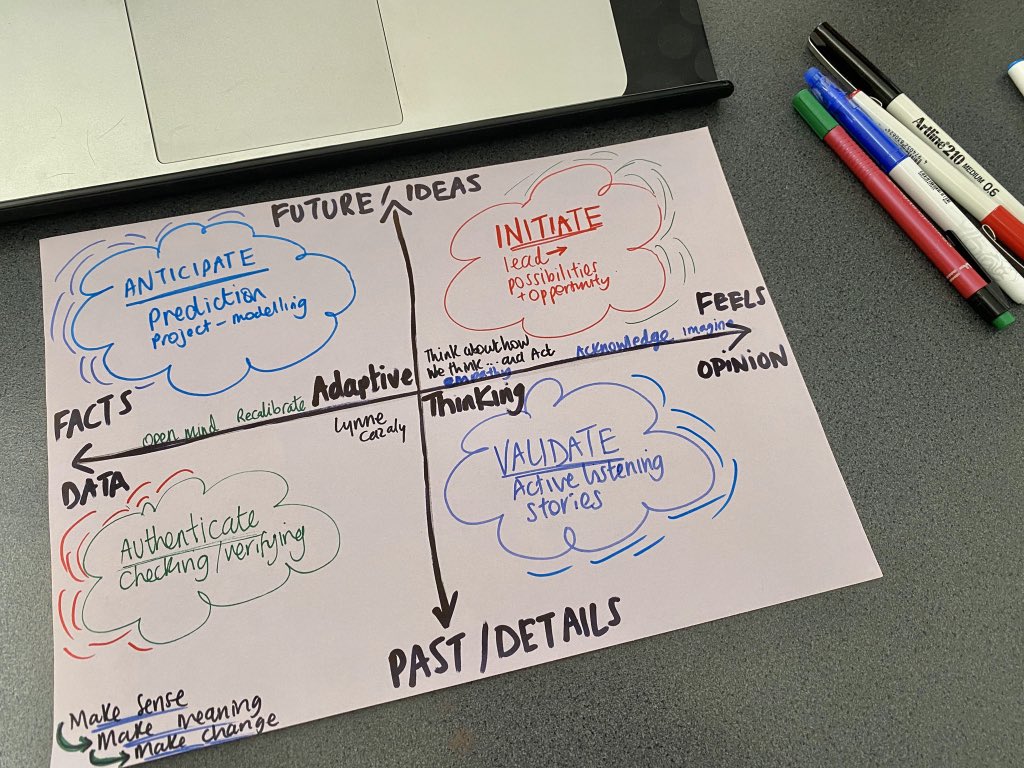 FUTURE / IDEAS
ANTICIPATE
Prediction
Project - modelling
INITIATE
lead →
possibilities
+ opportunity
FEELS
OPINION
Think about how
we think... and Act
Acknowledge imagine
empathy
Adaptive
Thinking
Lynne
Cazaly
FACTS
DATA
open mind Recalibrate
VALIDATE
Active listening
stories
Authenticate
checking/verifying
PAST / DETAILS
Make sense
Make meaning
Make change
Artline 210 MEDIUM 0.6